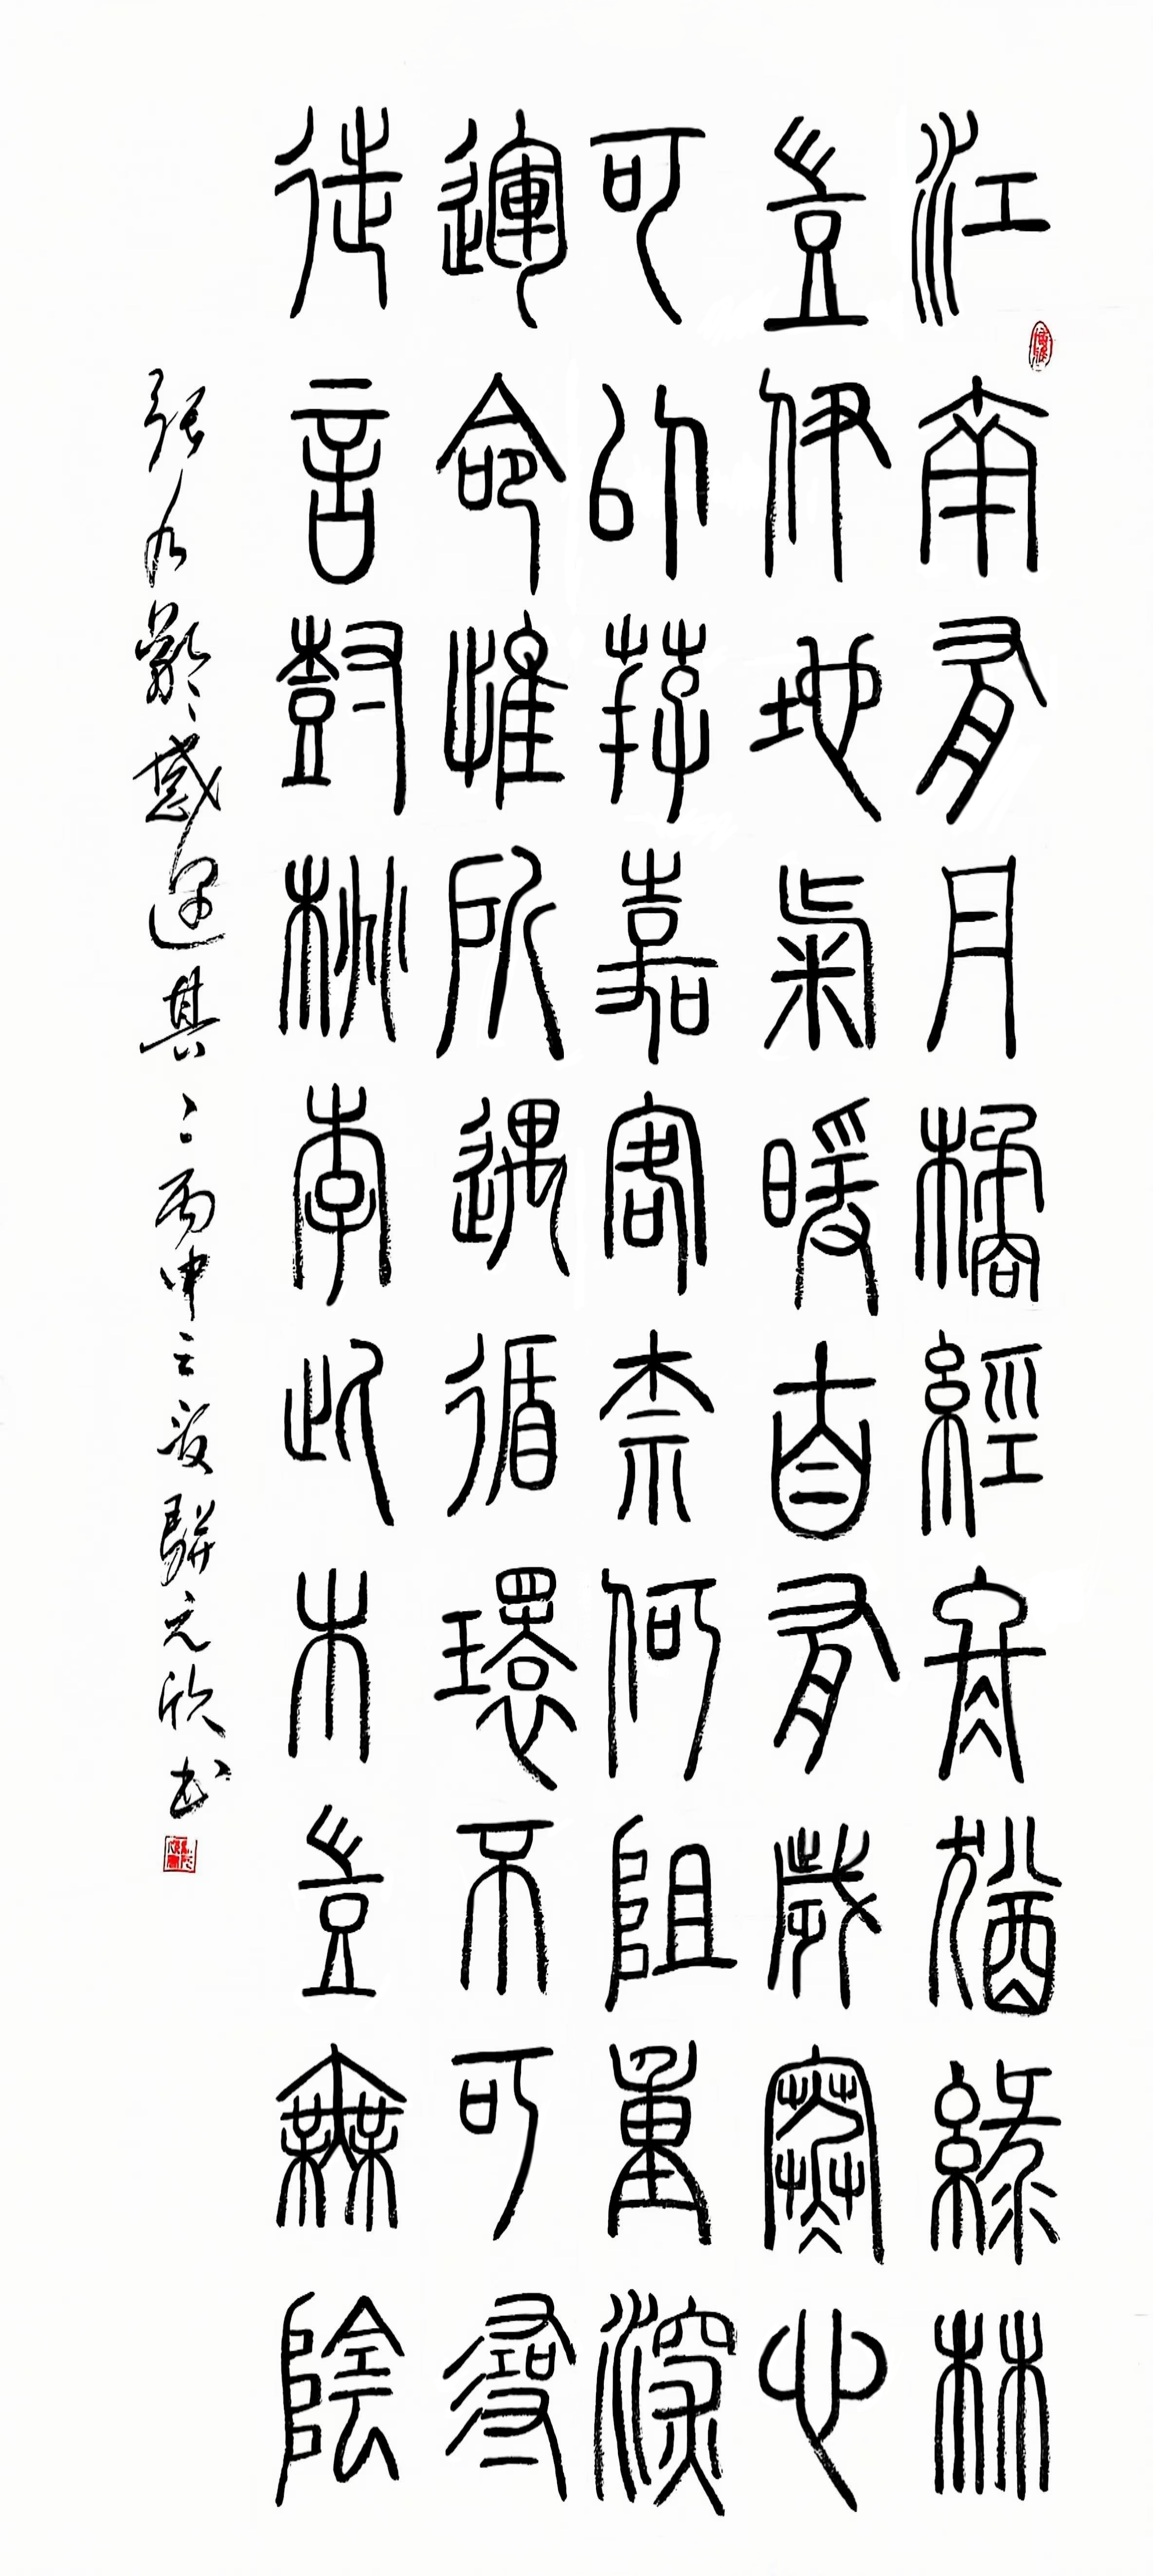 江南有丹橘經冬猶綠林
豈伊地氣暖自有歲寒心
可以荐嘉客奈何阻重深
運命惟所遇循環不可尋
徒言尌桃李此木豈無陰
張九齡感遇其二丙申之夏駢元欣书